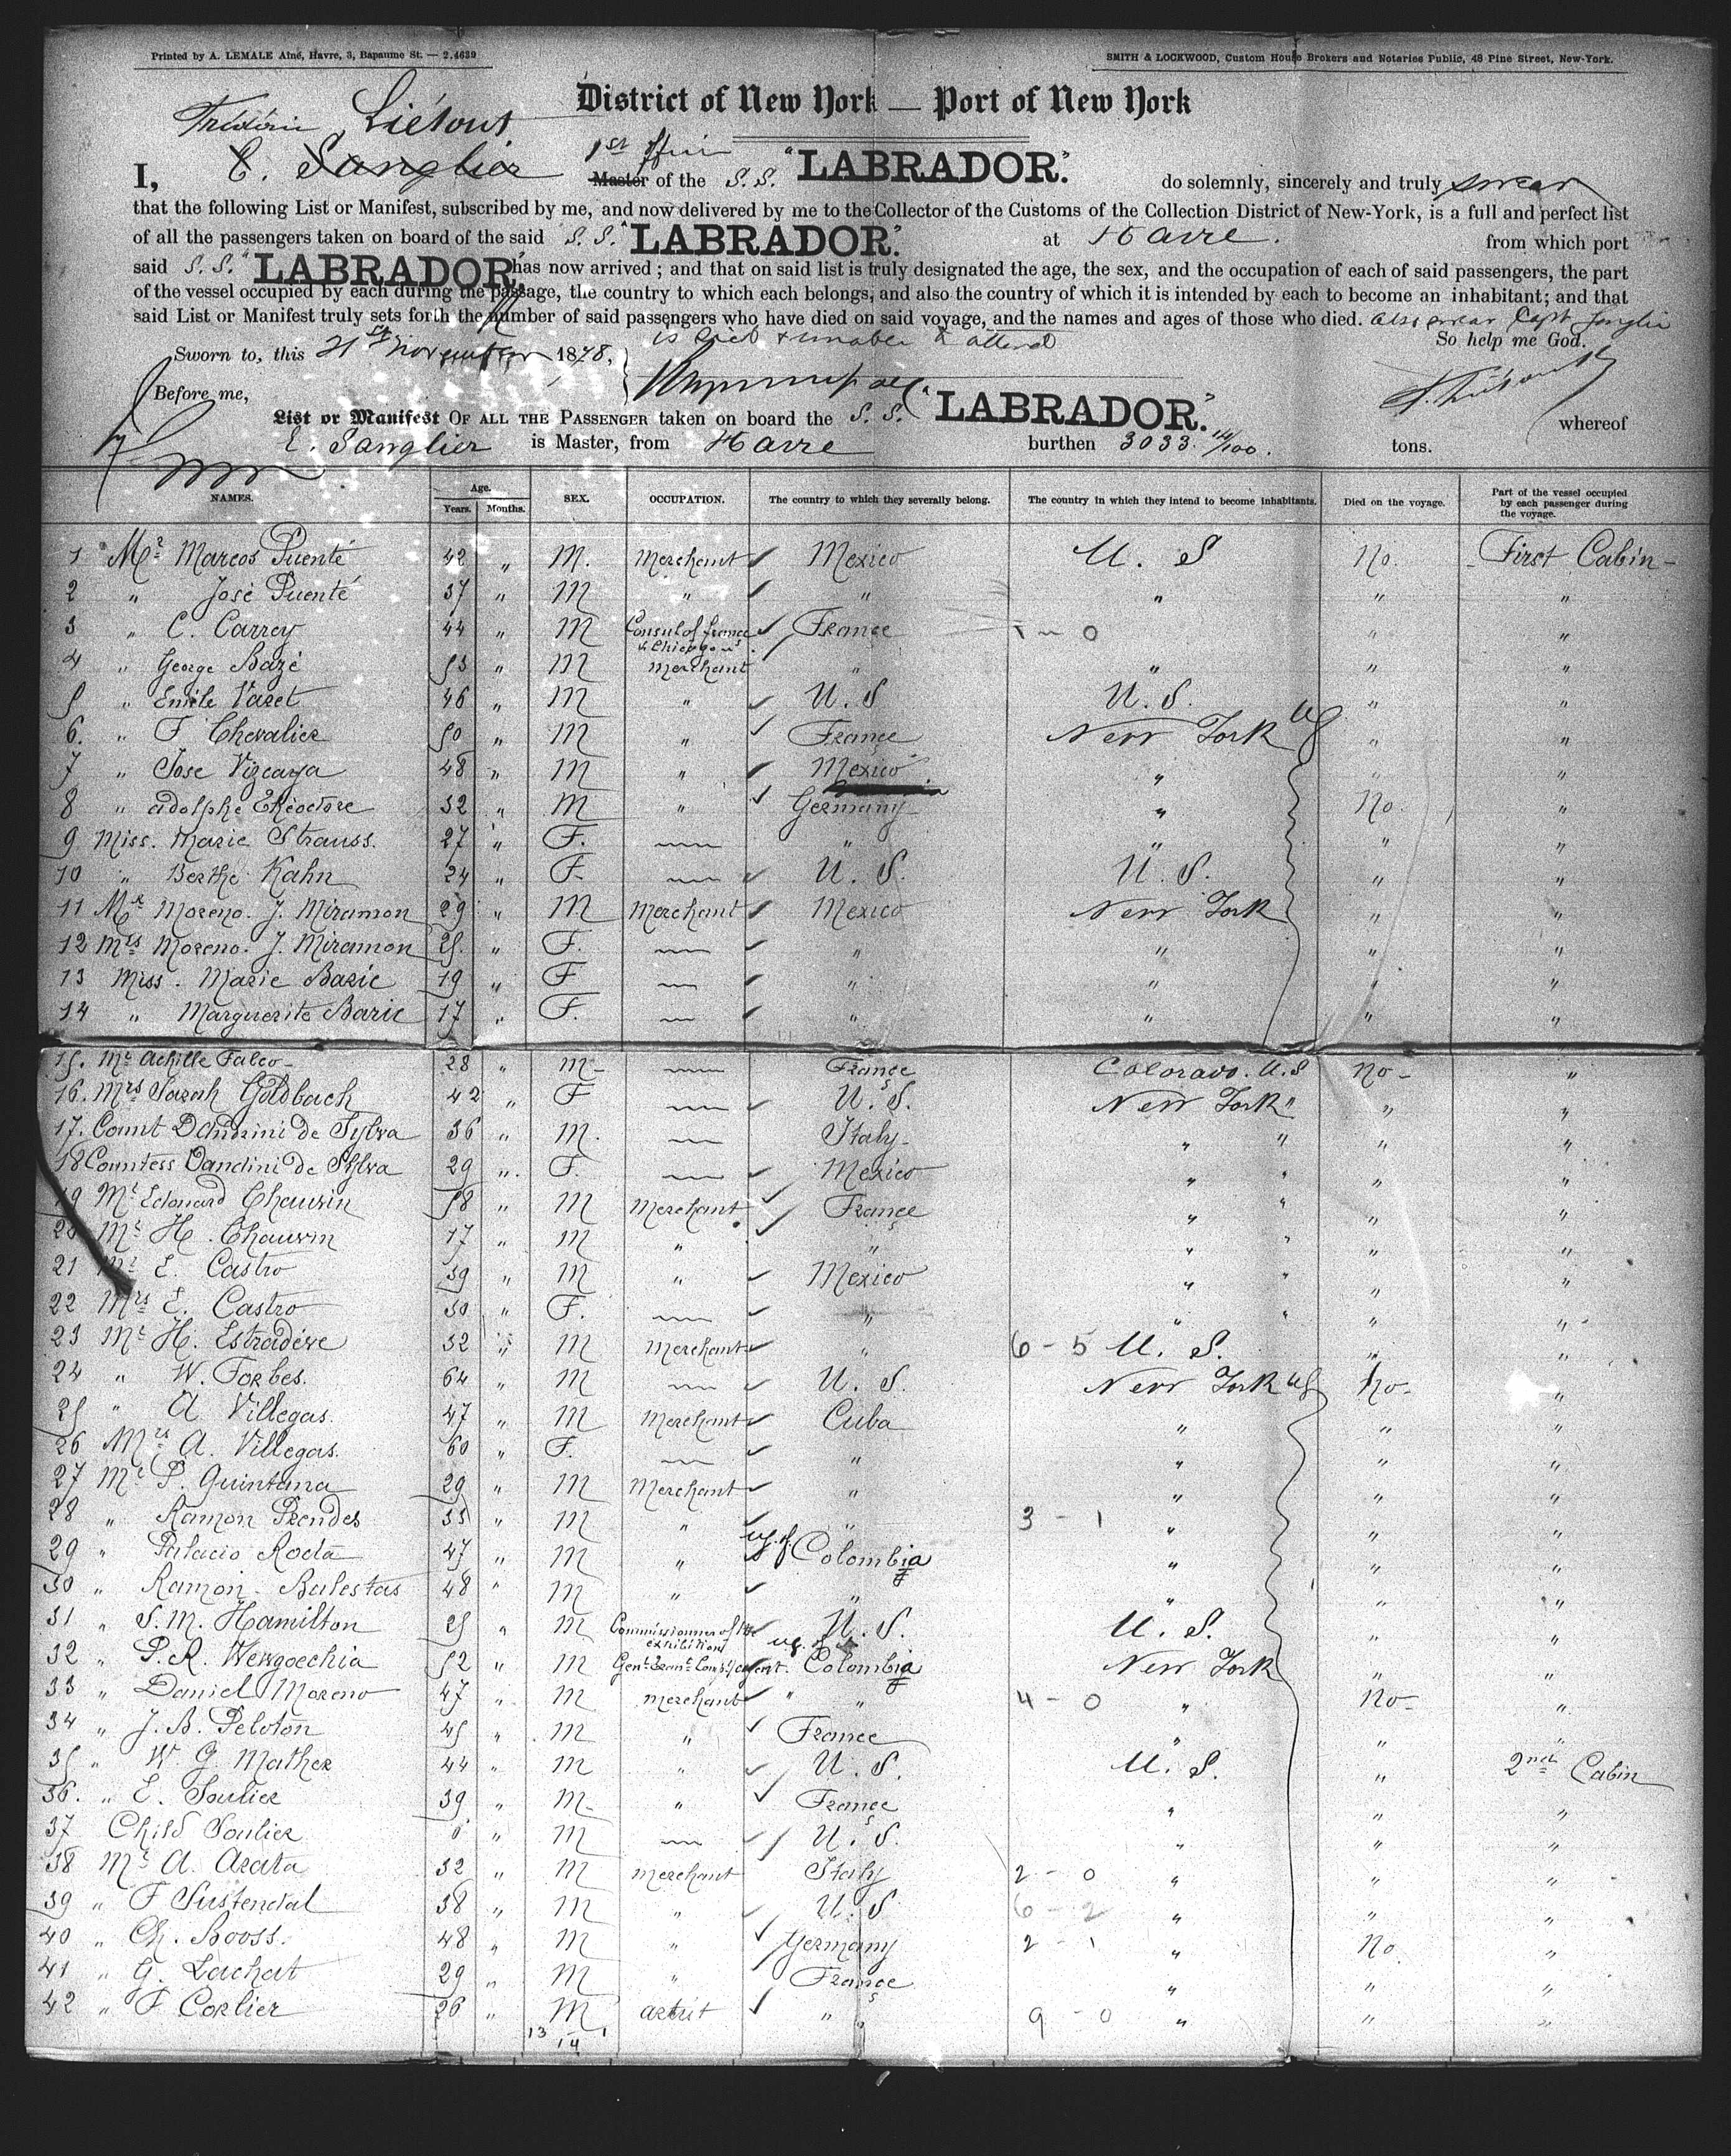 Printed by A. LEMALE Aîné, Havre, 3, Bapaume St. — 2.4639
SMITH & LOCKWOOD, Custom House Brokers and Notaries Public, 48 Pine Street, New-York.
District of New York — Port of New York
Liétout
I, E. Sanglier 1st Master of the S. S. "LABRADOR." do solemnly, sincerely and truly swear
that the following List or Manifest, subscribed by me, and now delivered by me to the Collector of the Customs of the Collection District of New-York, is a full and perfect list
of all the passengers taken on board of the said S. S. "LABRADOR." at Havre. from which port
said S. S. "LABRADOR" has now arrived; and that on said list is truly designated the age, the sex, and the occupation of each of said passengers, the part
of the vessel occupied by each during the passage, the country to which each belongs, and also the country of which it is intended by each to become an inhabitant; and that
said List or Manifest truly sets forth the number of said passengers who have died on said voyage, and the names and ages of those who died. also swear Capt Sanglier
is sick & unable to attend
Sworn to, this 21st november 1878, So help me God.
Before me,
List or Manifest OF ALL THE PASSENGER taken on board the S. S. "LABRADOR." whereof
E. Sanglier is Master, from Havre burthen 3033 14/100. tons.
NAMES. Age. Years. Months. SEX. OCCUPATION. The country to which they severally belong. The country in which they intend to become inhabitants. Died on the voyage. Part of the vessel occupied by each passenger during the voyage.
1 Mr Marcos Puenté 42 " M. Merchant Mexico U. S No. First Cabin
2 " José Puenté 37 " M " " " " "
3 " C. Carrey 44 " M Consul of france France " "
4 " George Bazé 53 " M merchant " " " "
5 " Emile Varet 46 " M " U. S U. S. " "
6. " F Chevalier 50 " M " France New York US " "
7 " Jose Vizcaya 48 " M " Mexico " " "
8 " adolphe Théodore 32 " M " Germany " No. "
9 Miss. Marie Strauss. 27 " F. — " " " "
10 " Berthe Kahn 24 " F. — U. S. U. S. " "
11 Mr Moreno. J. Miramon 29 " M Merchant Mexico New York " "
12 Mrs Moreno. J. Miramon 25. " F. — " " " "
13 Miss. Marie Barie 19 " F — " " " "
14 " Marguerite Barie 17 " F. — " " " "
15. Mr Achille Falco 28 " M — France Colorado. U.S No "
16. Mrs Sarah Goldbach 42 " F — U. S. New York " " "
17. Count Dandini de Sylva 36 " M. — Italy " " " "
18 Countess Dandini de Sylva 29 " F. — Mexico " " " "
19 Mr Edouard Chauvin 58 " M Merchant France " " " "
20 Mr H. Chauvin 17 " M " " " " " "
21 Mr E. Castro 39 " M " Mexico " " " "
22 Mrs E. Castro 30 " F. — " " " " "
23 Mr H. Estradère 32 " M Merchant " 6 - 5 U. S. " "
24 " W. Forbes. 64 " M — U. S. New York US No. "
25 " A Villegas. 47 " M Merchant Cuba " " "
26 Mrs A. Villegas. 60 " F. — " " " "
27 Mr P. Quintana 29 " M Merchant " " " "
28 " Ramon Prendes 33 " M " " 3 - 1 " " "
29 " Palacio Roda 47 " M " U.S. of Colombia " " "
30 " Ramon Balestas 48 " M " " " " "
31 " S. M. Hamilton 25 " M Commissionner of the exhibition U. S. U. S. " "
32 " P. R. 52 " M U.S. of Colombia New York " "
33 " Daniel Moreno 47 " M merchant " " 4 - 0 " No "
34 " J. B. Peloton 45 " M " France " " "
35 " W. G. Mather 44 " M " U. S. U. S. " 2nd Cabin
36. " E. Soulier 39 " M " France " " "
37 Child Soulier " M — U. S. " " "
38 Mr A. Arata 32 " M merchant Italy 2 - 0 " " "
39 " F Sustendal 38 " M " U. S 6 - 2 " " "
40 " Ch. Booss. 48 " M " Germany 2 - 1 " No "
41 " G. Lachat 29 " M " France " " "
42 " F Corlier 26 " M artist " 9 - 0 " " "
13 14 1